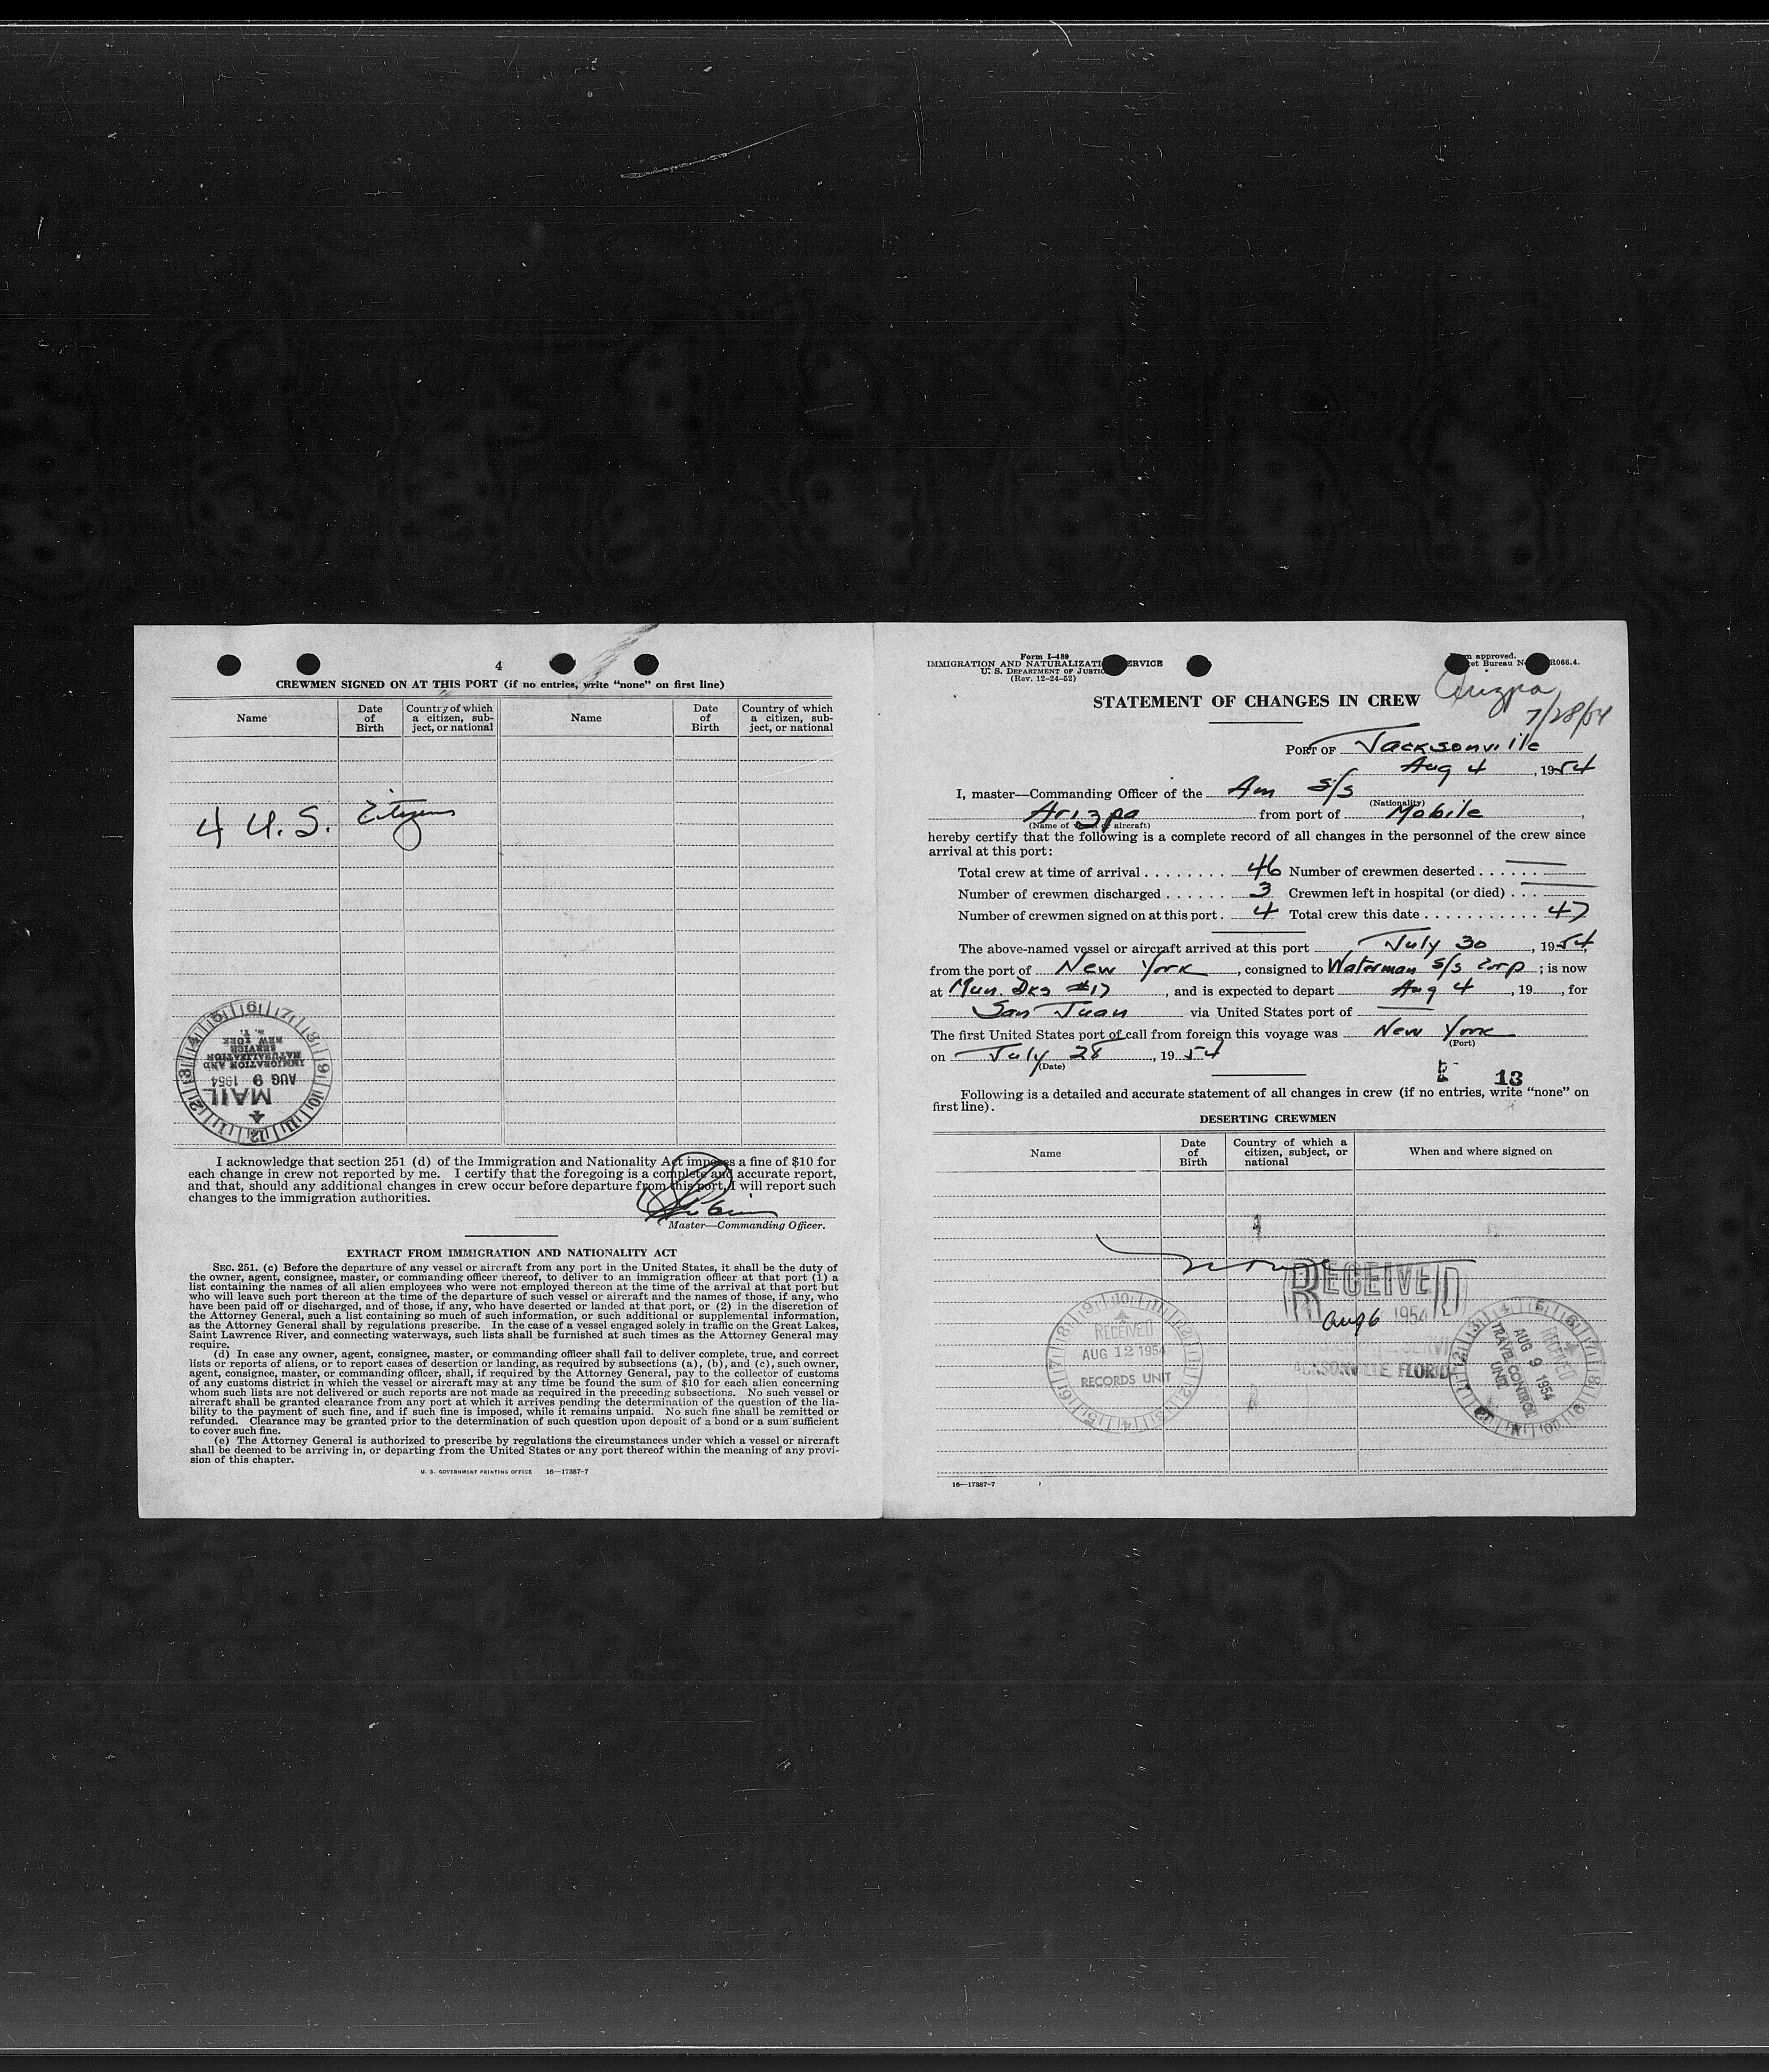 4
CREWMEN SIGNED ON AT THIS PORT (if no entries, write “none” on first line)
Name Date of Birth Country of which a citizen, subject, or national Name Date of Birth Country of which a citizen, subject, or national
4 U.S. Citizens
MAIL
AUG 9 1954
IMMIGRATION AND
NATURALIZATION
SERVICE
NEW YORK
I acknowledge that section 251 (d) of the Immigration and Nationality Act imposes a fine of $10 for
each change in crew not reported by me. I certify that the foregoing is a complete and accurate report,
and that, should any additional changes in crew occur before departure from this port, I will report such
changes to the immigration authorities.
Master—Commanding Officer.
EXTRACT FROM IMMIGRATION AND NATIONALITY ACT
SEC. 251. (c) Before the departure of any vessel or aircraft from any port in the United States, it shall be the duty of
the owner, agent, consignee, master, or commanding officer thereof, to deliver to an immigration officer at that port (1) a
list containing the names of all alien employees who were not employed thereon at the time of the arrival at that port but
who will leave such port thereon at the time of the departure of such vessel or aircraft and the names of those, if any, who
have been paid off or discharged, and of those, if any, who have deserted or landed at that port, or (2) in the discretion of
the Attorney General, such a list containing so much of such information, or such additional or supplemental information,
as the Attorney General shall by regulations prescribe. In the case of a vessel engaged solely in traffic on the Great Lakes,
Saint Lawrence River, and connecting waterways, such lists shall be furnished at such times as the Attorney General may
require.
(d) In case any owner, agent, consignee, master, or commanding officer shall fail to deliver complete, true, and correct
lists or reports of aliens, or to report cases of desertion or landing, as required by subsections (a), (b), and (c), such owner,
agent, consignee, master, or commanding officer, shall, if required by the Attorney General, pay to the collector of customs
of any customs district in which the vessel or aircraft may at any time be found the sum of $10 for each alien concerning
whom such lists are not delivered or such reports are not made as required in the preceding subsections. No such vessel or
aircraft shall be granted clearance from any port at which it arrives pending the determination of the question of the lia-
bility to the payment of such fine, and if such fine is imposed, while it remains unpaid. No such fine shall be remitted or
refunded. Clearance may be granted prior to the determination of such question upon deposit of a bond or a sum sufficient
to cover such fine.
(e) The Attorney General is authorized to prescribe by regulations the circumstances under which a vessel or aircraft
shall be deemed to be arriving in, or departing from the United States or any port thereof within the meaning of any provi-
sion of this chapter.
U. S. GOVERNMENT PRINTING OFFICE 16—17387-7
Form I-489
IMMIGRATION AND NATURALIZATION SERVICE
U. S. DEPARTMENT OF JUSTICE
(Rev. 12-24-52)
approved.
Bureau R066.4.
STATEMENT OF CHANGES IN CREW
Arizpa
7/28/54
PORT OF Jacksonville
Aug 4, 1954
I, master—Commanding Officer of the Am S/S
(Nationality)
Arizpa from port of Mobile,
(Name of aircraft)
hereby certify that the following is a complete record of all changes in the personnel of the crew since
arrival at this port:
Total crew at time of arrival 46 Number of crewmen deserted
Number of crewmen discharged 3 Crewmen left in hospital (or died)
Number of crewmen signed on at this port 4 Total crew this date 47
The above-named vessel or aircraft arrived at this port July 30, 1954,
from the port of New York, consigned to Waterman S/S Corp; is now
at Mun. Dks #17, and is expected to depart Aug 4, 19, for
San Juan via United States port of
The first United States port of call from foreign this voyage was New York
(Port)
on July 28, 1954
(Date)
13
Following is a detailed and accurate statement of all changes in crew (if no entries, write “none” on
first line).
DESERTING CREWMEN
Name Date of Birth Country of which a citizen, subject, or national When and where signed on
None
RECEIVED
Aug 6 1954
JACKSONVILLE, FLORIDA
RECEIVED
AUG 12 1954
RECORDS UNIT
RECEIVED
AUG 9 1954
TRAVEL CONTROL
UNIT
16—17387-7